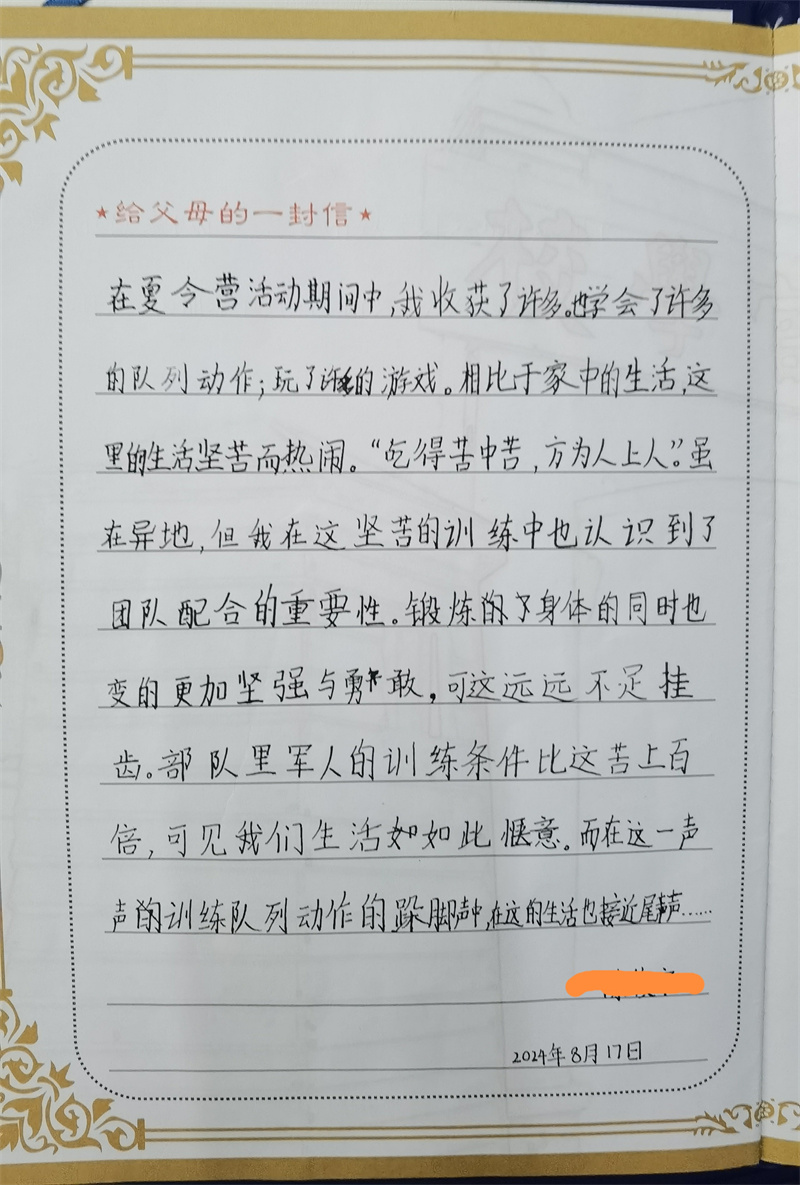 ★给父母的一封信★
在夏令营活动期间中,我收获了许多。也学会了许多
的队列动作;玩了许多的游戏。相比于家中的生活,这
里的生活坚苦而热闹。“吃得苦中苦,方为人上人”。虽
在异地,但我在这坚苦的训练中也认识到了
团队配合的重要性。锻炼的了身体的同时也
变的更加坚强与勇敢,可这远远不足挂
齿。部队里军人的训练条件比这苦上百
倍,可见我们生活如如此惬意。而在这一声
声的训练队列动作的跺脚声中,在这的生活也接近尾声……
2024年8月17日